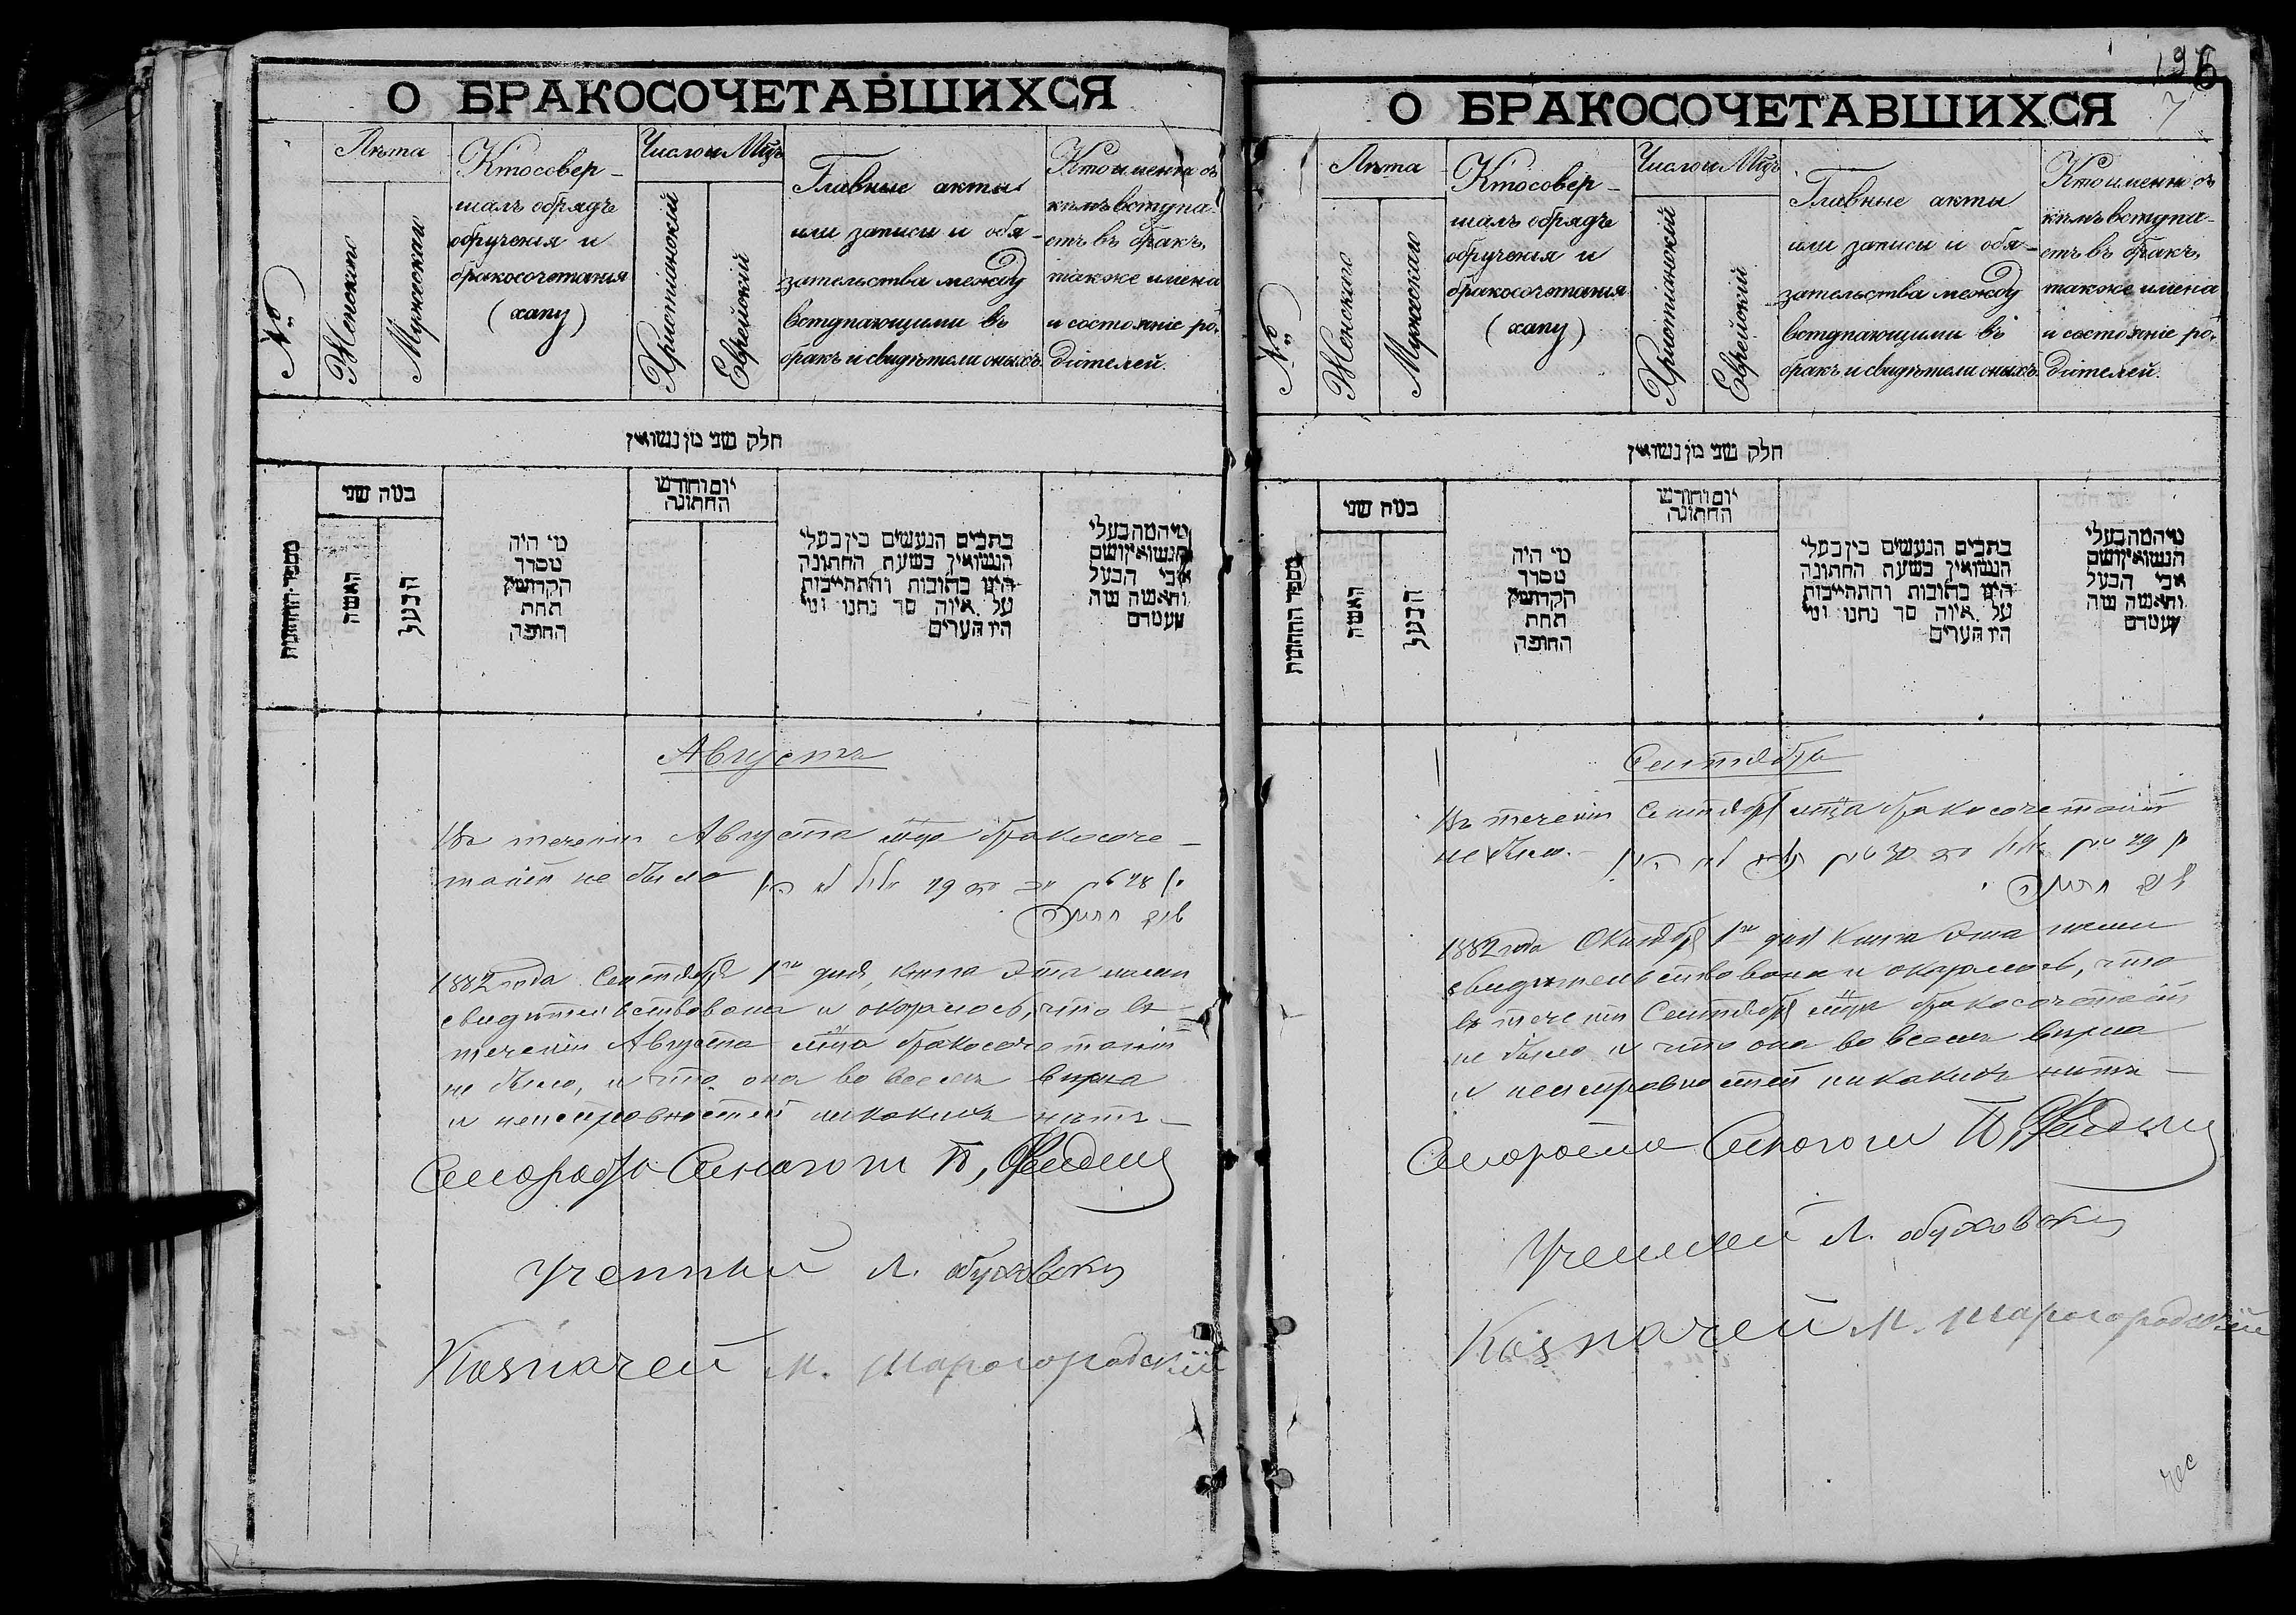 О БРАКОСОЧЕТАВШИХСЯ
№
Лѣта
Женскаго
Мужескаго
Кто совер-
шалъ обрядъ
обрученія и
бракосочетанія
(хапу)
Число и Мцъ
Христіанскій
Еврейскій
Главные акты
или записи и обя-
зательства между
вступающими въ
бракъ и свидѣтели оныхъ.
Кто именно съ
кѣмъ вступа-
етъ въ бракъ,
также имена
и состояніе ро-
дителей.
חלק שני מן נשואין
מספר החתונות
כמה שני
האשה
הבעל
מי היה
מסדר
הקדושין
תחת
החופה
יום וחודש
החתונה
כתבים הנעשים בין בעלי
הנשואין בשעת החתונה
היינו כתובות והתחייבות
על איזה סך נתנו ומי
היו הערים
מי המה בעלי
הנשואין ושם
אבי הבעל
והאשה
Августъ
Въ теченіи Августа мца бракосоче-
таній не было
1882 года Сентября 1го дня, книга эта нами
свидѣтельствована и оказалось, что въ
теченіи Августа мца бракосочетаній
не было, и что она во всемъ вѣрна
и неисправностей никакихъ нѣтъ
Староста Синагоги
Ученный Л. Обуховскій
Казначей М. Шарогородскій
196
7
О БРАКОСОЧЕТАВШИХСЯ
№
Лѣта
Женскаго
Мужескаго
Кто совер-
шалъ обрядъ
обрученія и
бракосочетанія
(хапу)
Число и Мцъ
Христіанскій
Еврейскій
Главные акты
или записи и обя-
зательства между
вступающими въ
бракъ и свидѣтели оныхъ.
Кто именно съ
кѣмъ вступа-
етъ въ бракъ,
также имена
и состояніе ро-
дителей.
חלק שני מן נשואין
מספר החתונות
כמה שני
האשה
הבעל
מי היה
מסדר
הקדושין
תחת
החופה
יום וחודש
החתונה
כתבים הנעשים בין בעלי
הנשואין בשעת החתונה
היינו כתובות והתחייבות
על איזה סך נתנו ומי
היו הערים
מי המה בעלי
הנשואין ושם
אבי הבעל
והאשה
Сентябрь
Въ теченіи Сентября мца бракосочетаній
не было.
1882 года Октября 1го дня книга эта нами
свидѣтельствована и оказалось, что
въ теченіи Сентября мца бракосочетаній
не было и что она во всемъ вѣрна
и неисправностей никакихъ нѣтъ
Староста Синагоги
Ученный Л. Обуховскій
Казначей М. Шарогородскій